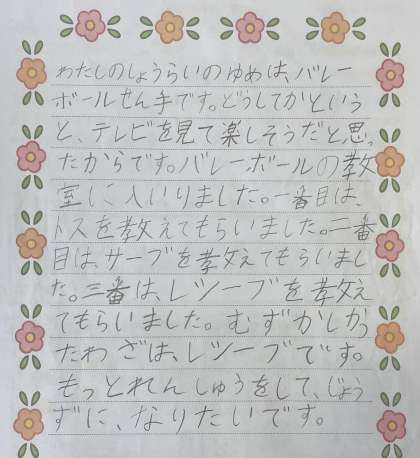 わたしのしょうらいのゆめは、バレー
ボールせん手です。どうしてかという
と、テレビを見て楽しそうだと思っ
たからです。バレーボールの教
室に入いりました。一番目は、
トスを教えてもらいました。二番
目は、サーブを教えてもらいまし
た。三番は、レツーブを教え
てもらいました。むずかしかっ
たわざは、レツーブです。
もっとれんしゅうをして、じょう
ずに、なりたいです。